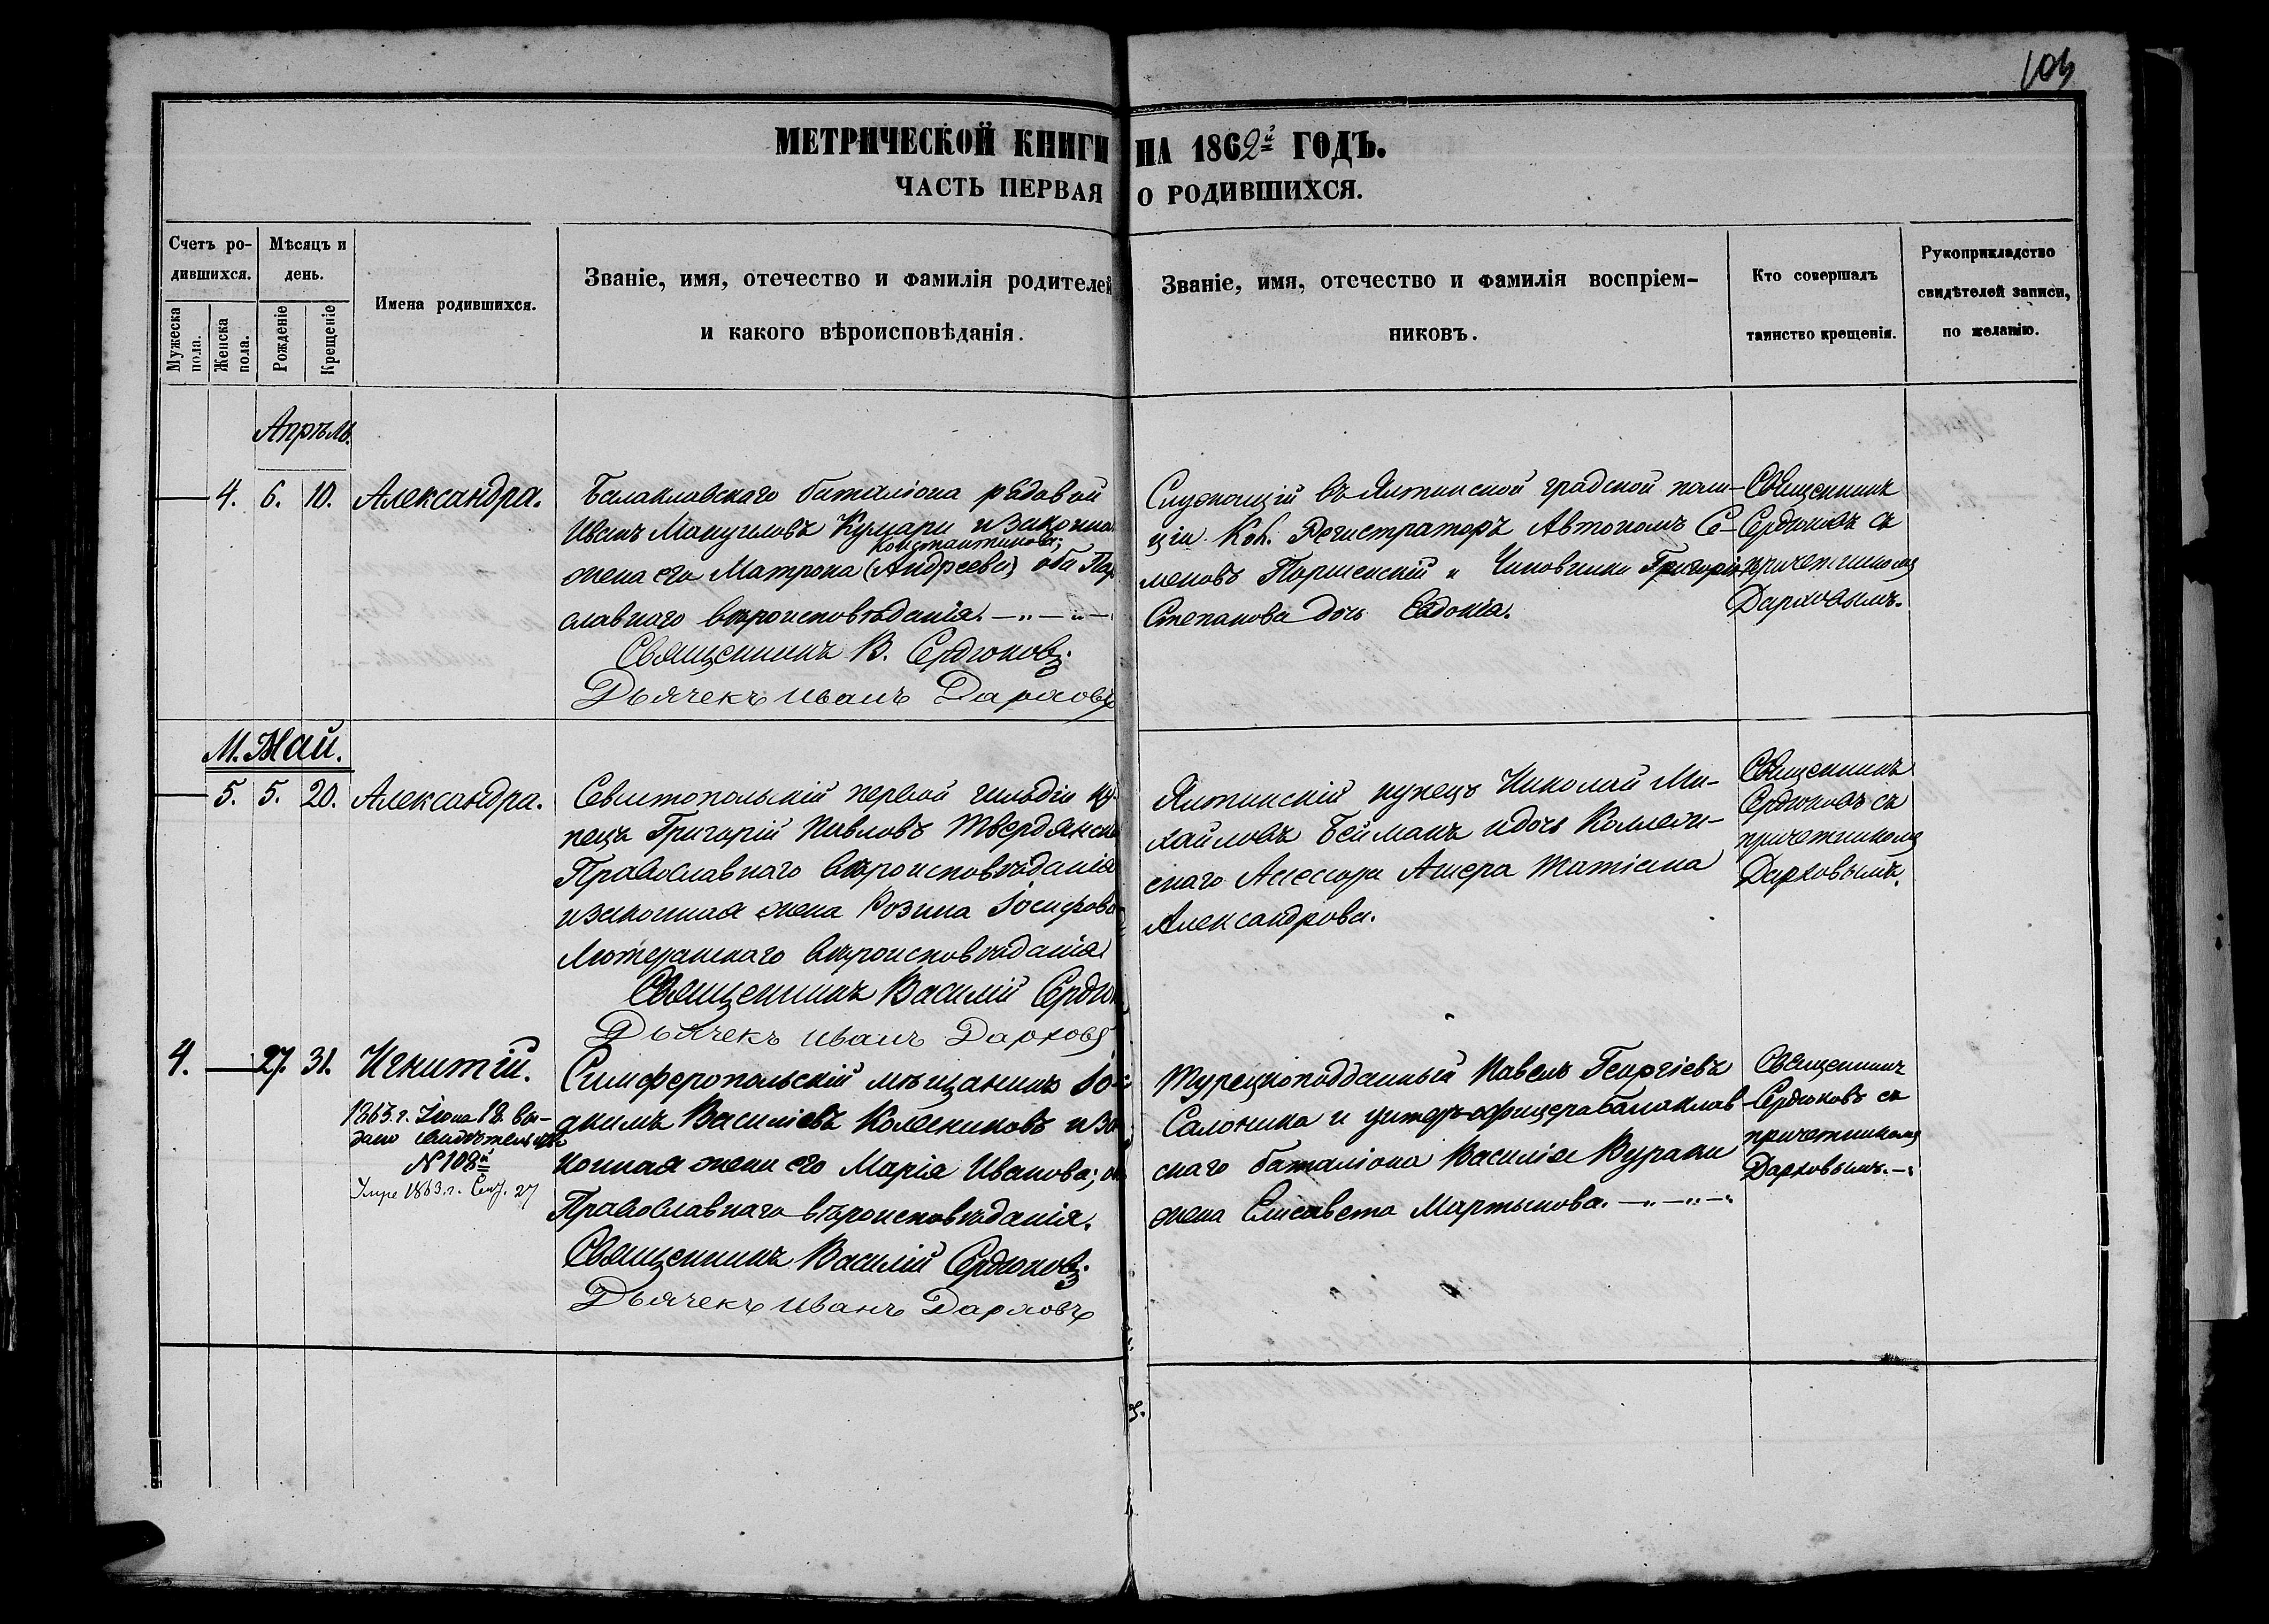 103
МЕТРИЧЕСКОЙ КНИГИ НА 1862й ГОДЪ.
ЧАСТЬ ПЕРВАЯ О РОДИВШИХСЯ.
Счетъ ро-
дившихся.
Мужеска пола.
Женска пола.
Мѣсяцъ и
день.
Рожденіе
Крещеніе
Имена родившихся.
Званіе, имя, отечество и фамилія родителей
и какого вѣроисповѣданія.
Званіе, имя, отечество и фамилія воспріем-
никовъ.
Кто совершалъ
таинство крещенія.
Рукоприкладство
свидѣтелей записи,
по желанію.
Апрѣль.
— 4. 6. 10. Александра.
Балаклавскаго баталіона рядовой
Иванъ Мануиловъ Кумари и законная
Константинова;
жена его Матрона (Андреева) оба Пра
славнаго вѣроисповѣданія. — „ — „ —
Священникъ В. Сердюковъ.
Дьячекъ Иванъ Дарховъ
Служащій въ Ялтинской градской поли-
ціи Кол. Регистраторъ Автономъ Се-
меновъ Поршенскій и Чиновника Григорія
Степанова дочь Евдокія.
Священникъ
Сердюковъ съ
причетникомъ
Дарховымъ.
М. Май.
— 5. 5. 20. Александра.
Севастопольскій первой гильдіи ку-
пецъ Григорій Павловъ Твердянскі
Православнаго вѣроисповѣданія
и законная жена Розина Іосифова
Лютеранскаго вѣроисповѣданія
Священникъ Василій Сердю
Дьячекъ Иванъ Дарховъ
Ялтинскій купецъ Николай Ми-
хайловъ Бейманъ и дочь Коллеж-
скаго Ассесора Ашера Татіана
Александрова.
Священникъ
Сердюковъ съ
причетникомъ
Дарховымъ.
4. — 27. 31. Игнатій.
1863. г. Іюна 18. вы-
дано свидѣтельство
№ 108й
Умре 1863. г. Сен. 27
Симферопольскій мѣщанинъ Іо-
акимъ Василіевъ Колесниковъ и за
конная жена его Марія Иванова; о
Православнаго вѣроисповѣданія.
Священникъ Василій Сердюковъ.
Дьячекъ Иванъ Дарховъ
Турецкоподданный Павелъ Георгіевъ
Салоника и унтеръ-офицера Балаклав-
скаго баталіона Василія Курани
жена Елисавета Мартынова. — „ — „ —
Священникъ
Сердюковъ съ
причетникомъ
Дарховымъ. —